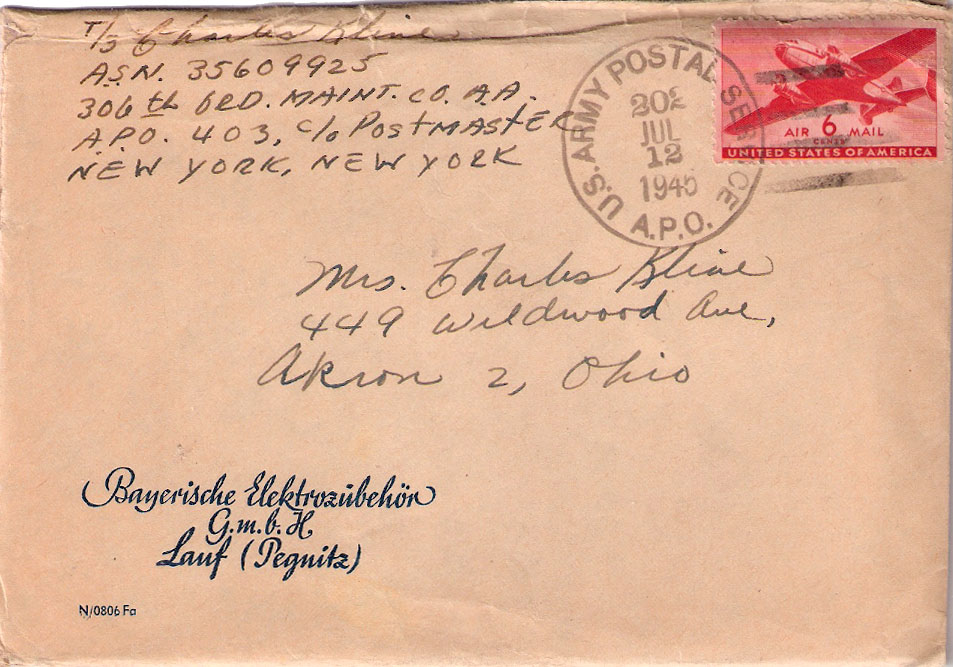 T/3 Charles Kline
A.S.N. 35609925
306th ORD. MAINT. CO. A.A.
A.P.O. 403, c/o PostMASTER
NEW YORK, NEW YORK
U.S. ARMY POSTAL SERVICE
202
JUL
12
1945
A.P.O.
AIR 6 MAIL
CENTS
UNITED STATES OF AMERICA
Mrs. Charles Kline
449 Wildwood Ave,
Akron 2, Ohio
Bayerische Elektrozubehör
G.m.b.H
Lauf (Pegnitz)
N/0806 Fa